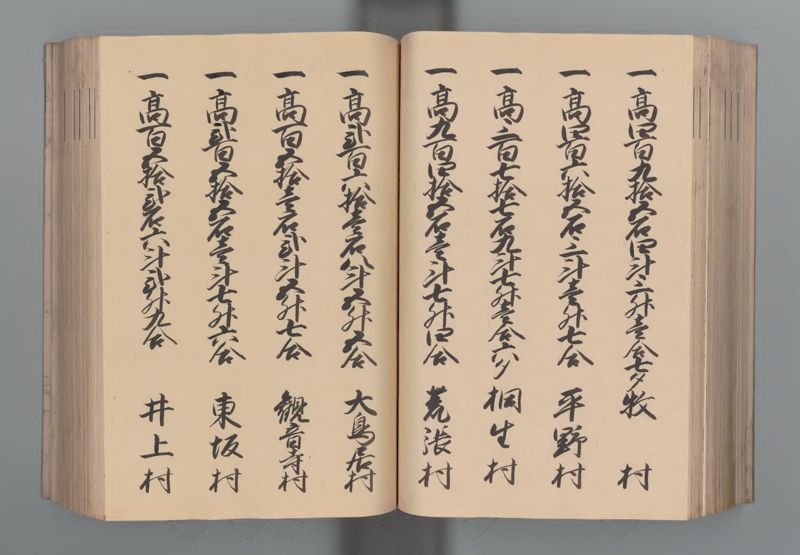 一高四百九拾五石四斗三升壱合七夕牧村
一高四百六拾五石三斗壱升七合平野村
一高三百七拾七石九斗七升壱合六夕桐生村
一高九百四拾五石壱斗七升四合荒張村
一高弐百六拾壱石八斗五升五合大鳥居村
一高百五拾壱石弐斗五升七合観音寺村
一高弐百五拾五石壱斗七升六合東坂村
一高百五拾弐石六斗弐升九合井上村